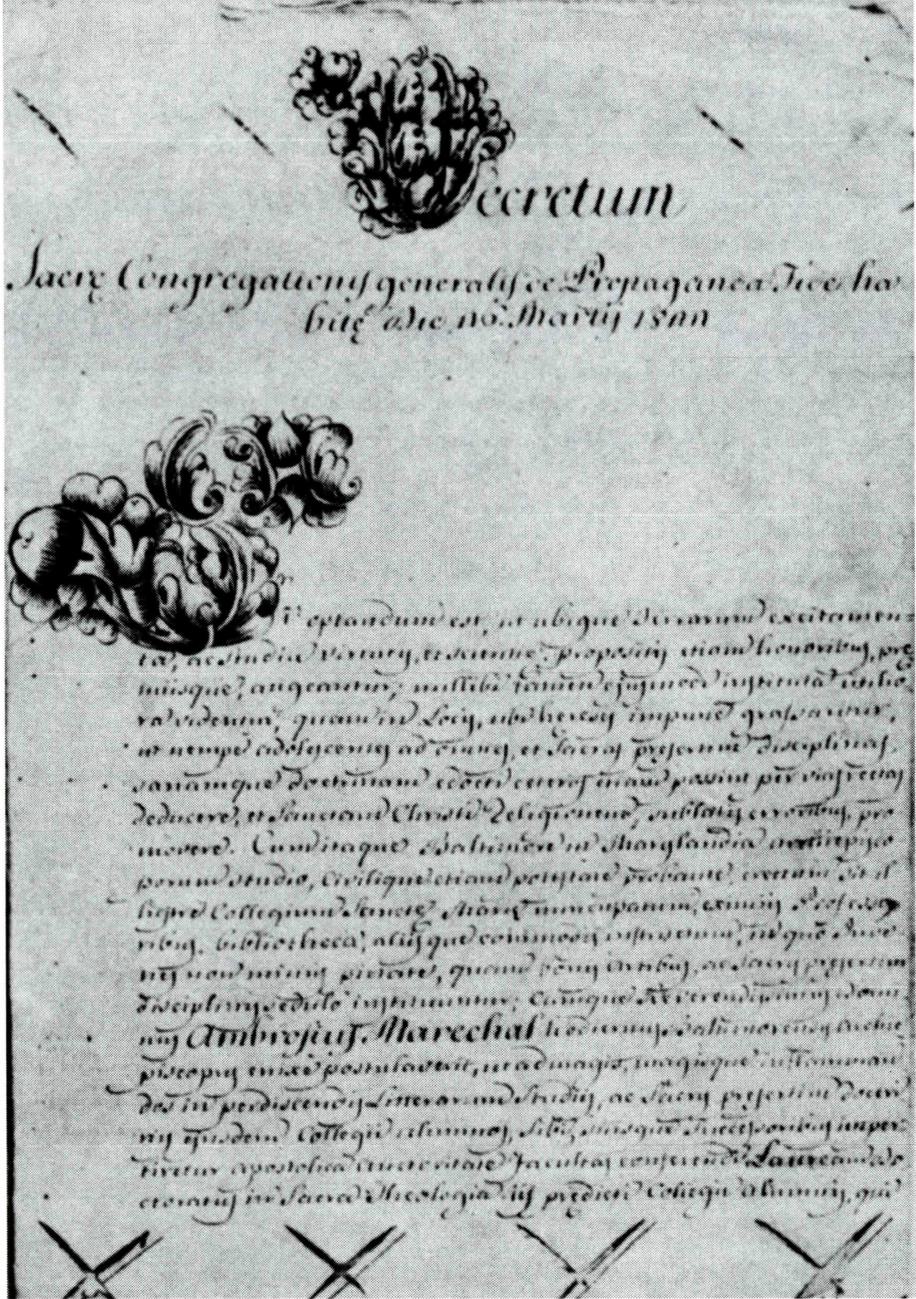 Decretum
Sacrę Congregationis generalis de Propaganda Fide ha
bitę Die Martij
optandum est, ut ubique terrarum excitamen=
ta, ac studia virtutis, et scientię, propositis etiam honoribus, prę
miisque, augeantur; nullibi tamen ejusmodi instituta utilio
ra videntur, quam in Locis, ubi heresis impune grassatur,
ut nempe adolescentes ad omnes, et Sacras presertim disciplinas,
sanamque doctrinam edocti ceteros possint per vias rectas
deducere, et Sanctam Christi Religionem, sublatis erroribus, pro
movere. Cum itaque Baltimore in Marylandia Archiepisco
porum studio, Civilique etiam potestate probante, erectum sit il
Collegium Sanctę Marię nuncupatum, eximiis Professo
ribus, bibliotheca, aliisque commodis instructum, in quo Juve
nes non minus pietate, quam bonis artibus, ac Sacris presertim
disciplinis sedulo instituuntur; Cumque Reverendissimus Domi
nus Ambrosius Marechal hodiernus Baltimorensis Archie
piscopus enixe postulaverit, ut ad magis, magisque inflamman
dos in perdiscendis Litterarum Studiis, ac Sacris presertim doctri
nis ejusdem Collegii alumnos, Sibi, suisque Successoribus imper
tiretur Apostolica Auctoritate facultas conferendi Lauream Do
ctoratus in Sacra Theologia iis predicti Collegii alumnis, qui